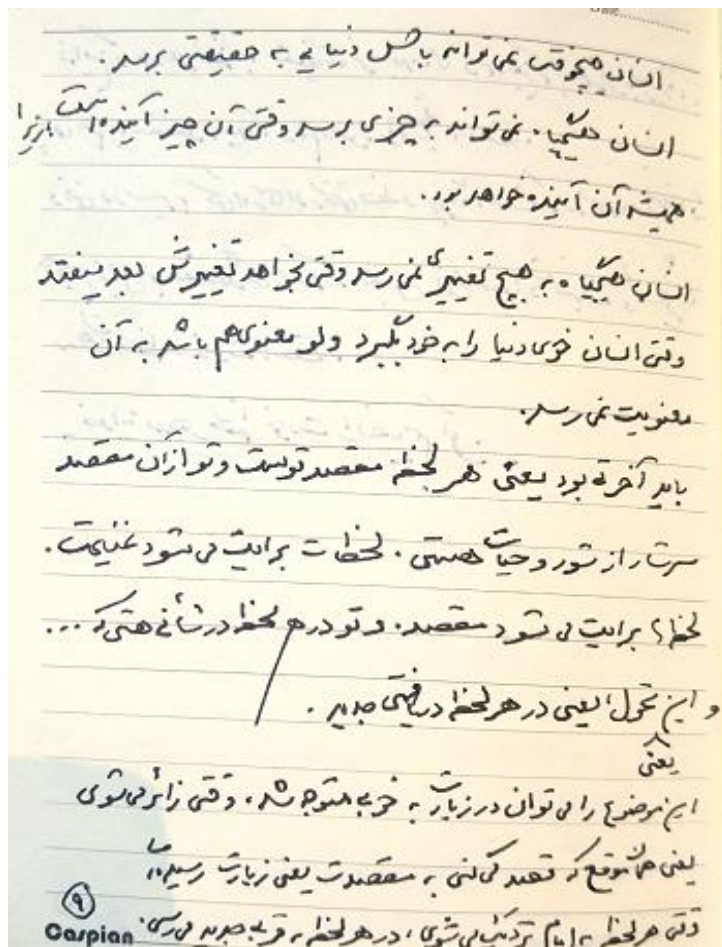 انسان هیچوقت نمی تواند با شکل دنیایی به حقیقتی برسد.
انسان هیچگاه نمی تواند به چیزی برسد وقتی آن چیز آینده است زیرا
همیشه آن آینده خواهد بود.
انسان هیچگاه به هیچ تغییری نمی رسد وقتی بخواهد تغییرش بعد بیفتد
وقتی انسان خوی دنیا را به خود بگیرد ولو معنوی هم باشد به آن
معنویت نمی رسد.
باید آخرتی بود یعنی هر لحظه مقصد توست و تو از آن مقصد
سرشار از شور و حیات هستی. لحظات برایت می شود غنیمت.
لحظه ها برایت می شود مقصد. و تو در هر لحظه در شأنی هستی که ...
و این تحول یعنی در هر لحظه دریافتی جدید.
یعنی
این موضوع را می توان در زیارت به خوبی متوجه شد، وقتی زائر می شوی
یعنی همان موقع که قصد می کنی به مقصدت یعنی زیارت رسیده ای
وقتی هر لحظه به امام نزدیک می شوی، در هر لحظه به قربی جدید می رسی.
۹
Caspian